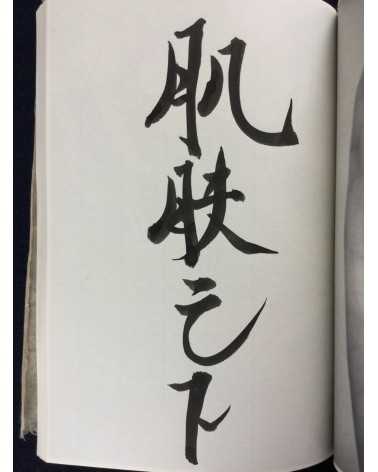 肌肤之下